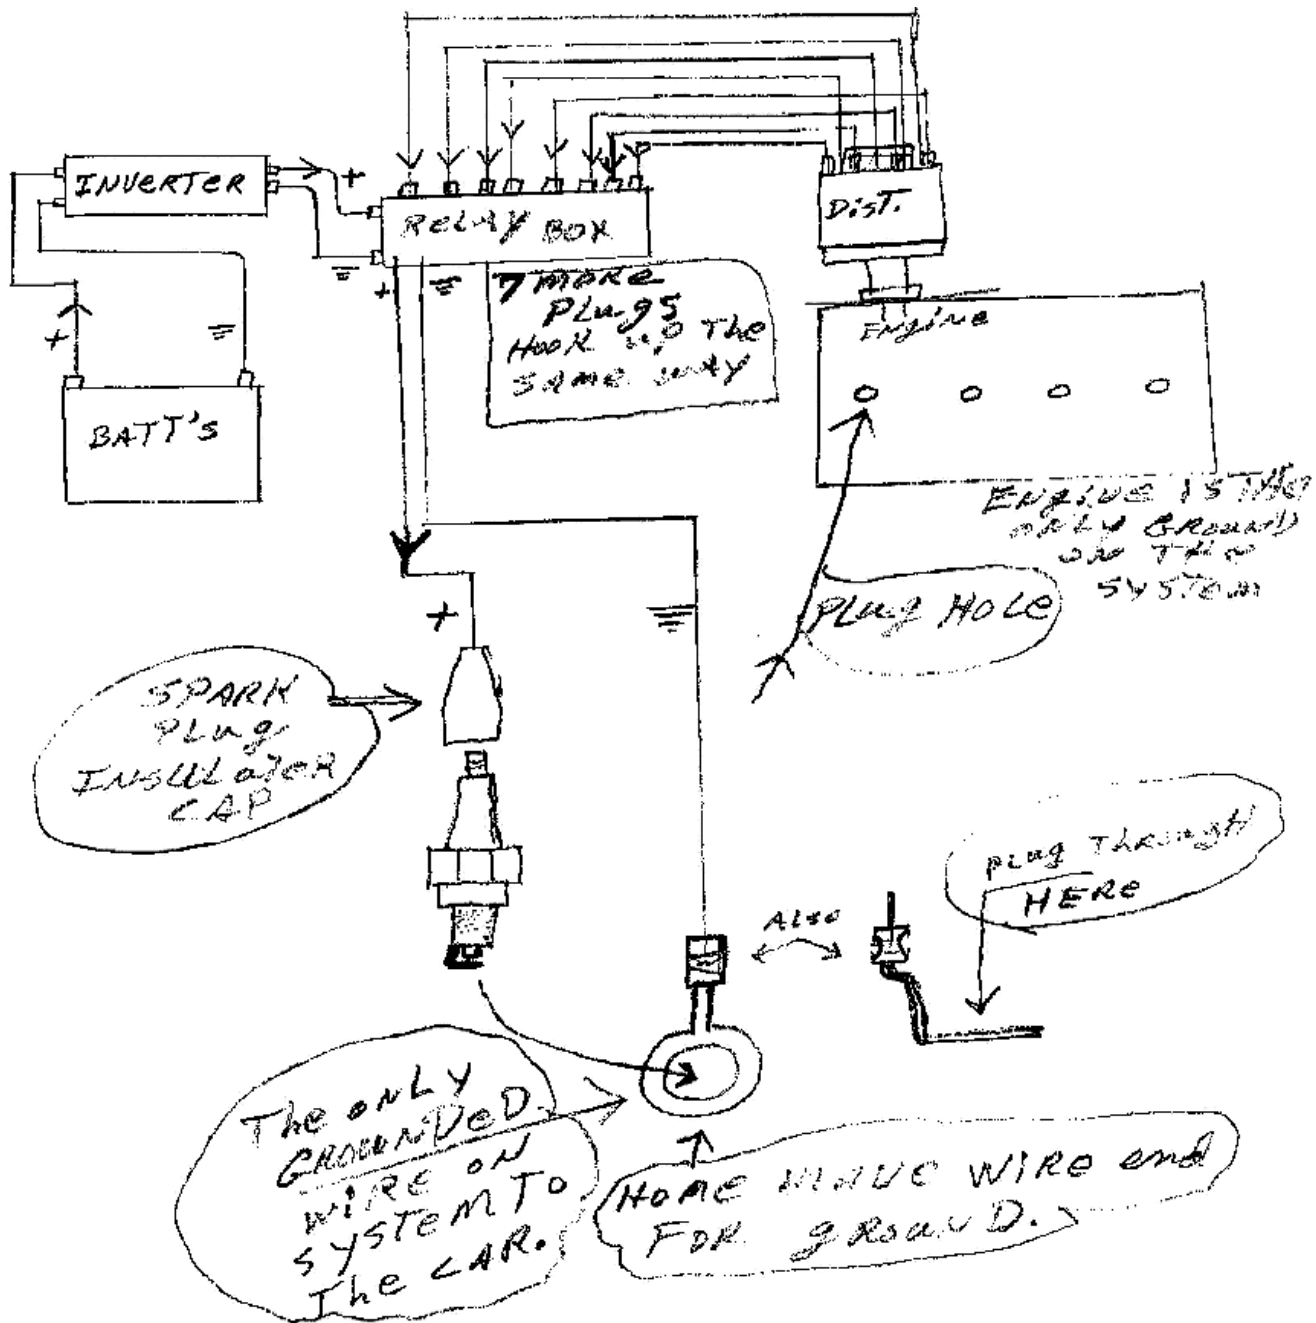 INVERTER
+
RELAY BOX
DIST.
+
7 MORE
PLUGS
HOOK UP THE
SAME WAY
ENGINE
+
BATT'S
ENGINE IS THE
ONLY GROUND
ON THE
SYSTEM
PLUG HOLE
+
SPARK
PLUG
INSULATER
CAP
PLUG THROUGH
HERE
ALSO
The ONLY
GROUNDED
WIRE ON
SYSTEM TO
The CAR.
HOME MADE WIRE end
FOR GROUND.